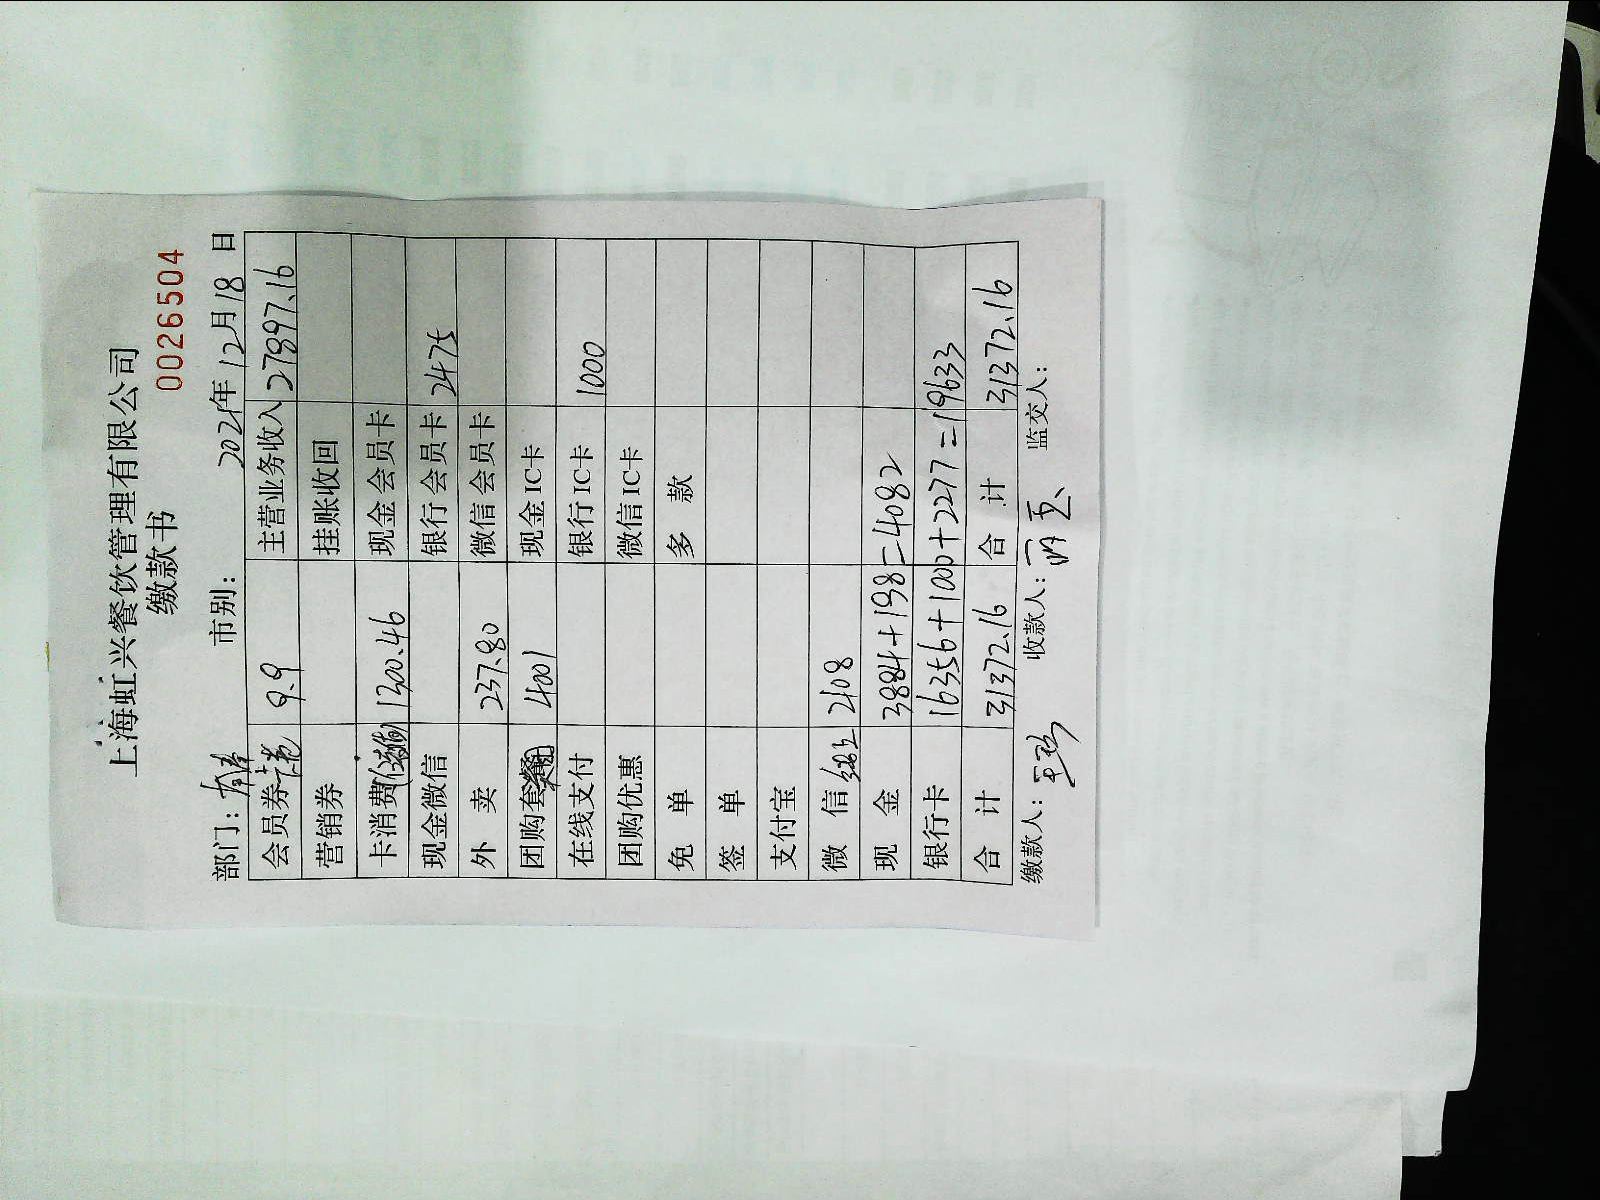 上海虹兴餐饮管理有限公司
缴款书
0026504
部门: 市别: 2021年12月18日
会员券 9.9 主营业务收入 27897.16
营销券 挂账收回
卡消费 1300.46 现金会员卡
现金微信 银行会员卡 2475
外卖 237.80 微信会员卡
团购套餐 4001 现金IC卡
在线支付 银行IC卡 1000
团购优惠 微信IC卡
免单 多款
签单
支付宝
微信 2108
现金 3884+198=4082
银行卡 16356+1000+2277=19633
合计 31372.16 合计 31372.16
缴款人: 收款人: 监交人: